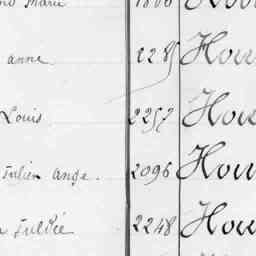 Marie 1806
anne 2285 Hou
Louis 2257 Hou
Julien Ange. 2096 Hou
2248 Hou